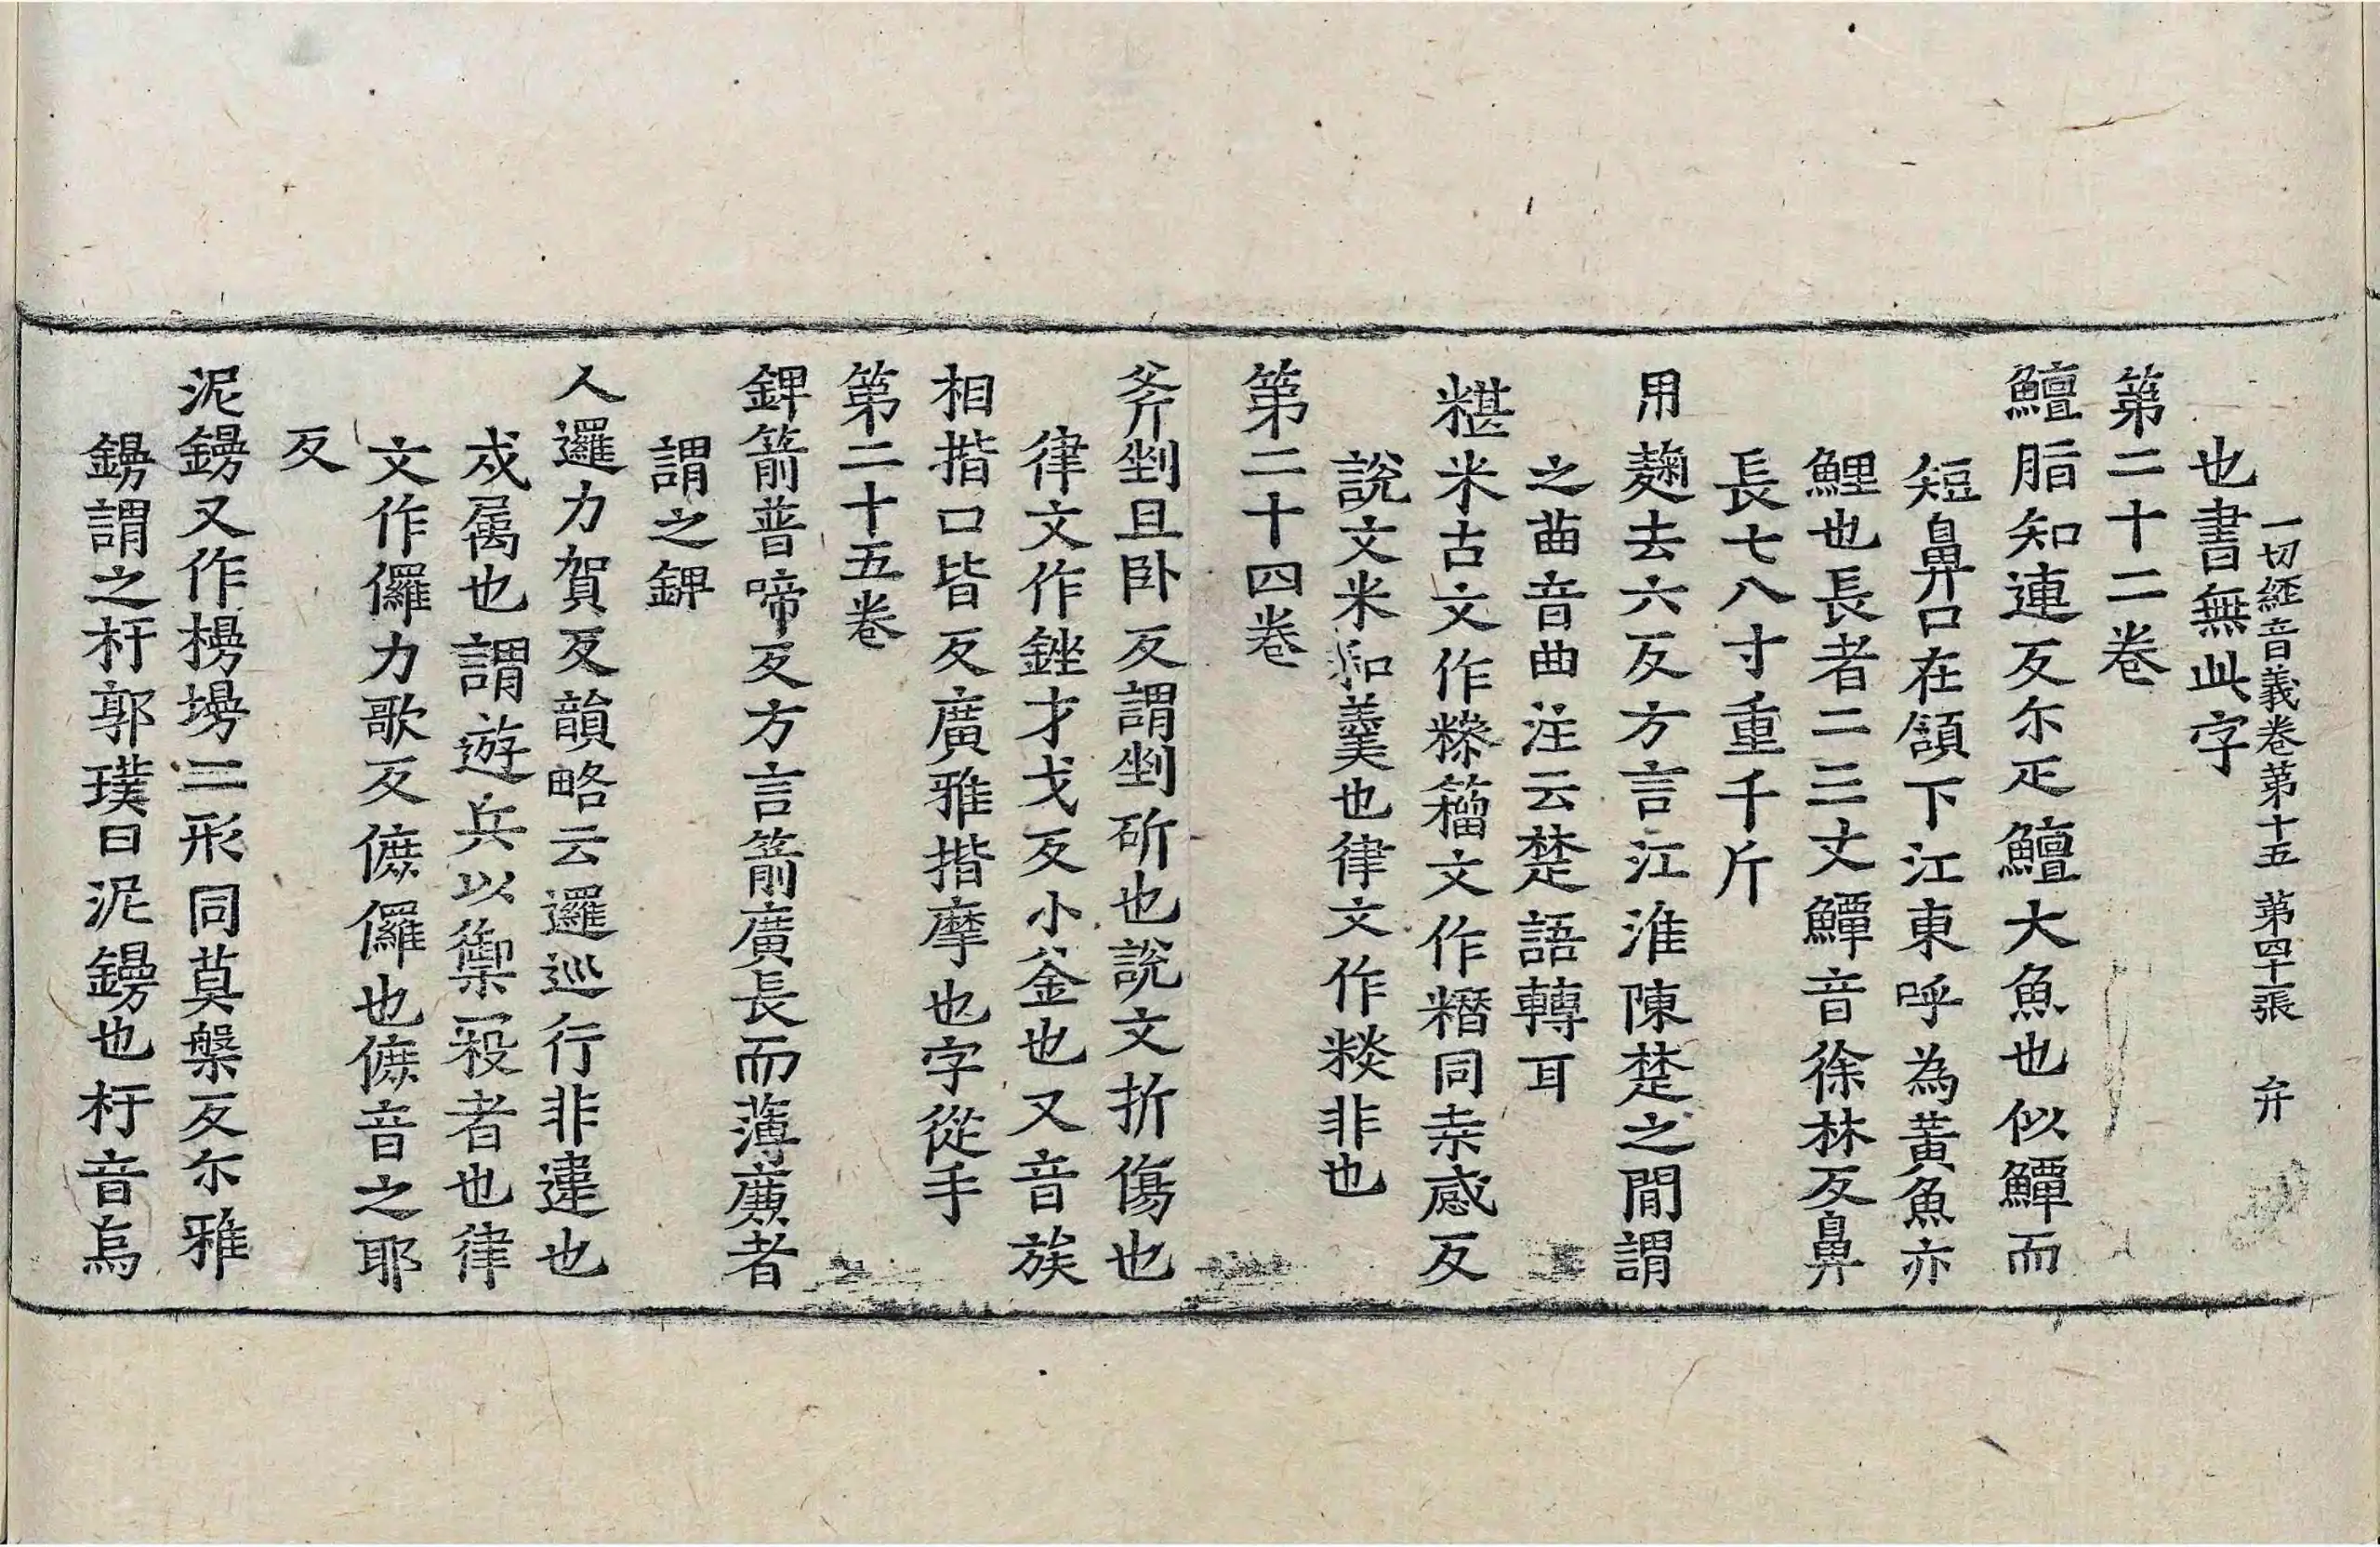 一切経音義卷第十五 第四十二張 弁
也書無此字
第二十二卷
鱣脂知連反尒疋鱣大魚也似鱏而
短鼻口在頷下江東呼為黃魚亦
鯉也長者二三丈鱏音徐林反鼻
長七八寸重千斤
用麹去六反方言江淮陳楚之閒謂
之䒼音曲注云楚語轉耳
糂米古文作糝籀文作糣同桒感反
說文米和羹也律文作糝非也
第二十四卷
斧剉且卧反謂剉斫也說文折傷也
律文作銼才戈反小釜也又音族
相揩口皆反廣雅揩摩也字從手
第二十五卷
錍箭普啼反方言箭廣長而薄廉者
謂之錍
人邏力賀反韻略云邏巡行非違也
戍屬也謂遊兵以禦寇者也律
文作儸力歌反㒓儸也㒓音之耶
反
泥鏝又作槾墁二形同莫槃反尒雅
鏝謂之杇郭璞曰泥鏝也杇音烏